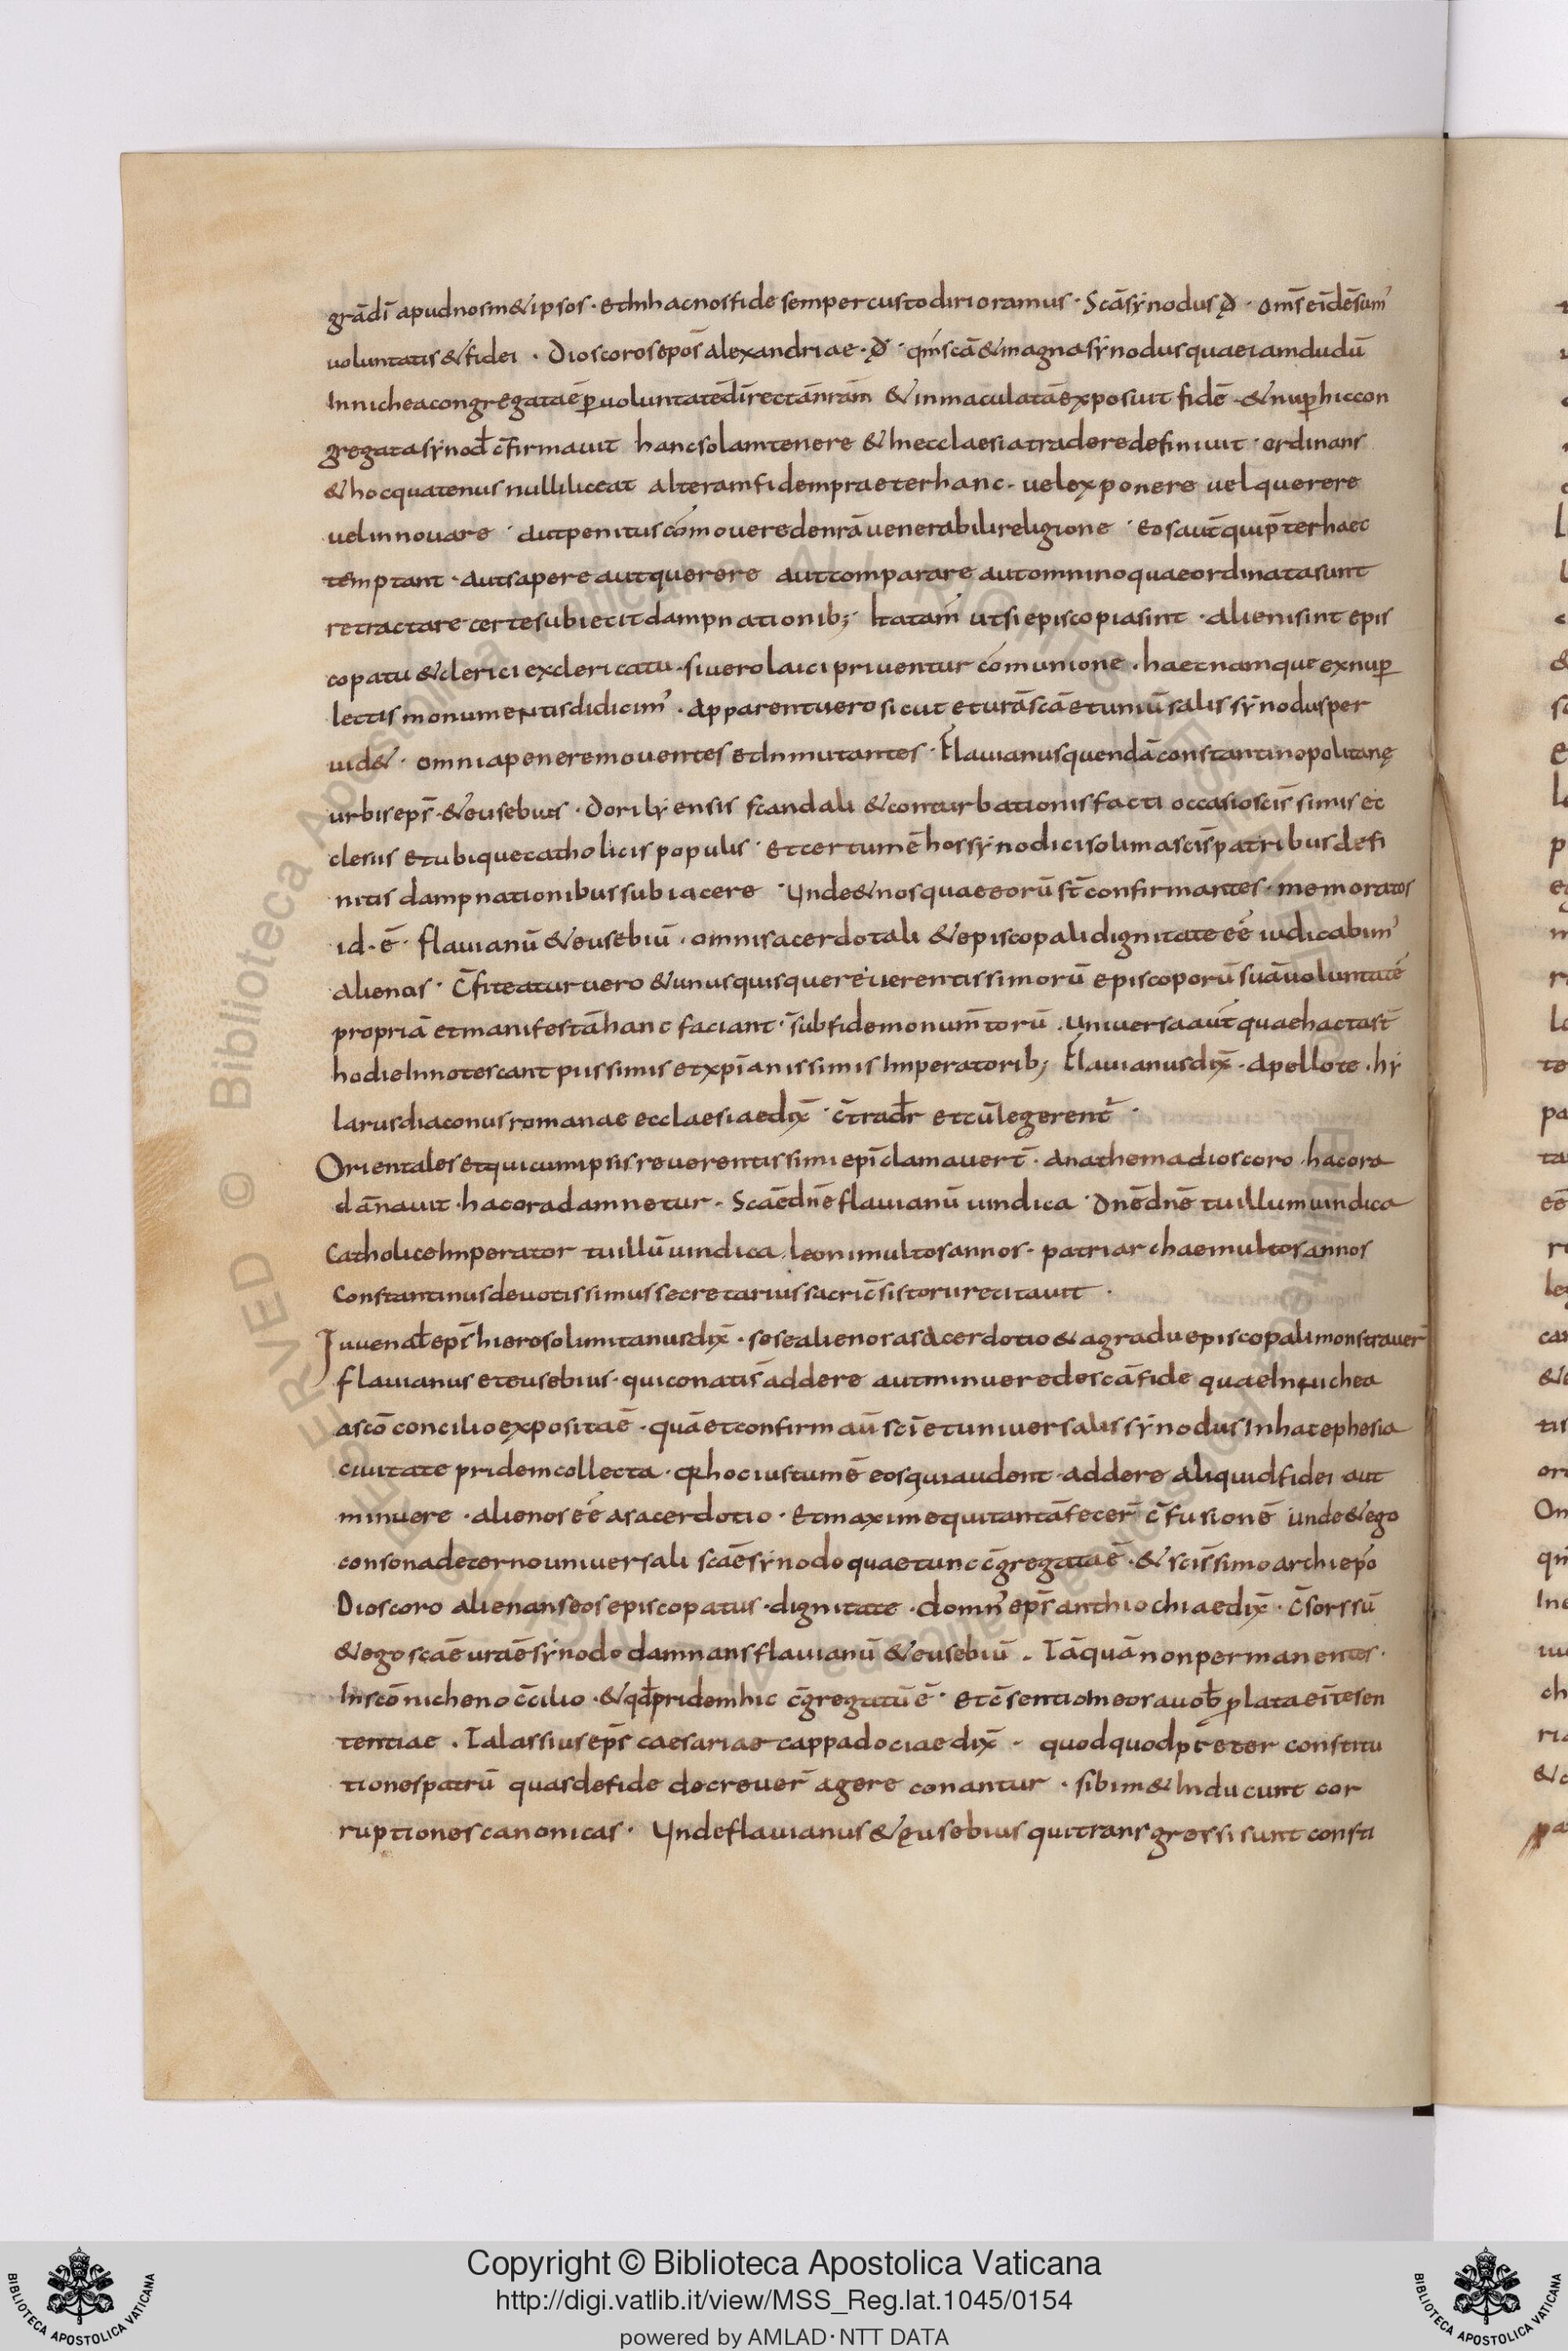 grādī apudnosm&ipsos · etInhacnosfide sempercustodirioramus · Scāsÿnodus đ · oms̄ eīdēsum᾽
uoluntatis &fidei · Dioscorosepos̄ alexandriae · đ · qm̄scā&magnasÿnodusquaeiamdudū
Innicheacongregataē ꝑuoluntatēdīrectān̄rām̄ &inmaculatāexposiuit fidē · &nuꝑhiccon
gregatasÿnod̄ c̄firmauit hancsolamtenere &Inecclaesiatraderedefiniuit · ordinans
&hocquatenusnulliliceat alteramfidempraeterhanc · uelexponere uelquerere
uelinnouare · autpenituscom̄ouerede n̄rāuenerabilireligione · eosaut̄quip̄terhaec
temptant · autsapere autquerere autcomparare automninoquaeordinatasunt
retractare certesubiecitdampnationib; · Itatam̄ utsiepiscopiasint · alienisint epis
copatu &clerici exclericatu · siuerolaicipriuentur com̄unione · haecnamqueexnuꝑ
lectis monumentisdidicim᾽ · apparentuero sicut eturāscāetuniūsalis sÿnodusper
uid& · omniapeneremouentes etInmutantes · Flauianusquendāconstantinopolitanę
urbiseps̄ · &eusebius · Dorilÿensis scandali &conturbationisfacti occasioscis̄simisec
clesiis etubiquecatholicispopulis · Etcertumē hossÿnodicisolimascis̄patribusdefi
nitis dampnationibussubiacere · Unde&nosquaeeorū st̄ confirmantes · memoratos
id · ē · flauianū &eusebiū · omnisacerdotali &episcopalidignitate eē iudicabim᾽
alienos · C̄fiteaturuero &unusquisquereuerentissimorū episcoporū suāuoluntatē
propriā etmanifestāhanc faciant · s̄ubfidemonum̄torū · Uniuersaaut̄quaehactast̄
hodieInnotescant piissimis etxp̄ianissimis Imperatorib; Flauianusdix̄ · apellote · hÿ
larusdiaconusromanae ecclaesiaedix̄ · c̄trad̄r etcūlegerent̄ ·
Orientales etquicumipsisreuerentissimi epīclamauert̄ · anathemadioscoro · hacora
dān̄auit · hacoradamnetur · Scāedn̄e flauianū uindica · Dn̄edn̄e tuillumuindica
CatholiceImperator tuillūuindica · leonimultosannos · patriarchaemultosannos
Constantinusdeuotissimussecretariussacric̄sistoriirecitauit ·
Iuuenal̄eps̄hierosolimitanusdix̄ · sesealienosasacerdotio&agraduepiscopalimonstrauer̄
flauianus eteusebius · quiconatis̄addere autminueredescāfide quaeInnichea
ascō concilioexpositaē · quāetconfirmaū scī etuniuersalissÿnodusInhacephesia
ciuitate pridemcollecta · qꝛhociustumē eosquiaudent · addere aliquidfidei aut
minuere · alienos eē asacerdotio · Etmaximequitantāfecer̄ c̄fusionē unde&ego
consonadecernouniuersali scāesÿnodo quaetuncc̄gregataē · &scis̄simoarchiep̄o
Dioscoro alienanseosepiscopatus · dignitate · domn᾽ eps̄ anthiochiaedix̄ · c̄sorssū
&egoscāeurāesÿnodo damnansflauianū &eusebiū · Tāquānonpermanentes ·
Inscōnicheno c̄cilio · &qd̄pridemhic c̄gregatūē · etc̄sentioIneosauob̄ ꝓlataeīt̄esen
tentiae · Talassiuseps̄ caesariaecappadociaedix̄ · quodquodp̄eter constitu
tionespatrū quasdefide decreuer̄ agere conantur · sibim&Inducunt cor
ruptionescanonicas · Undeflauianus &eusebius quitransgressisunt consti
Copyright © Biblioteca Apostolica Vaticana
http://digi.vatlib.it/view/MSS_Reg.lat.1045/0154
powered by AMLAD·NTT DATA